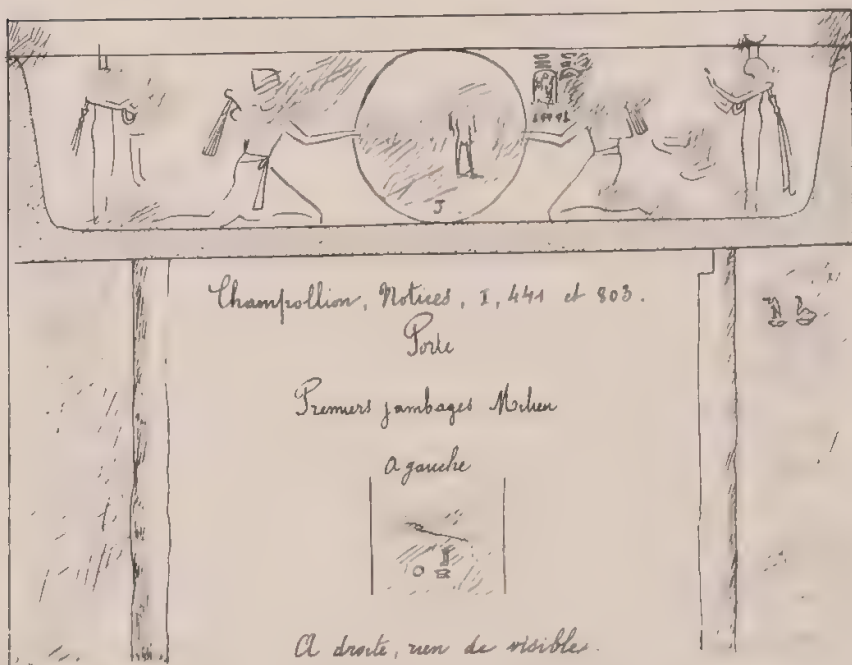 Champollion, Notices, I, 441 et 803.
Porte
Premiers jambages Milieu
A gauche
A droite, rien de visible.